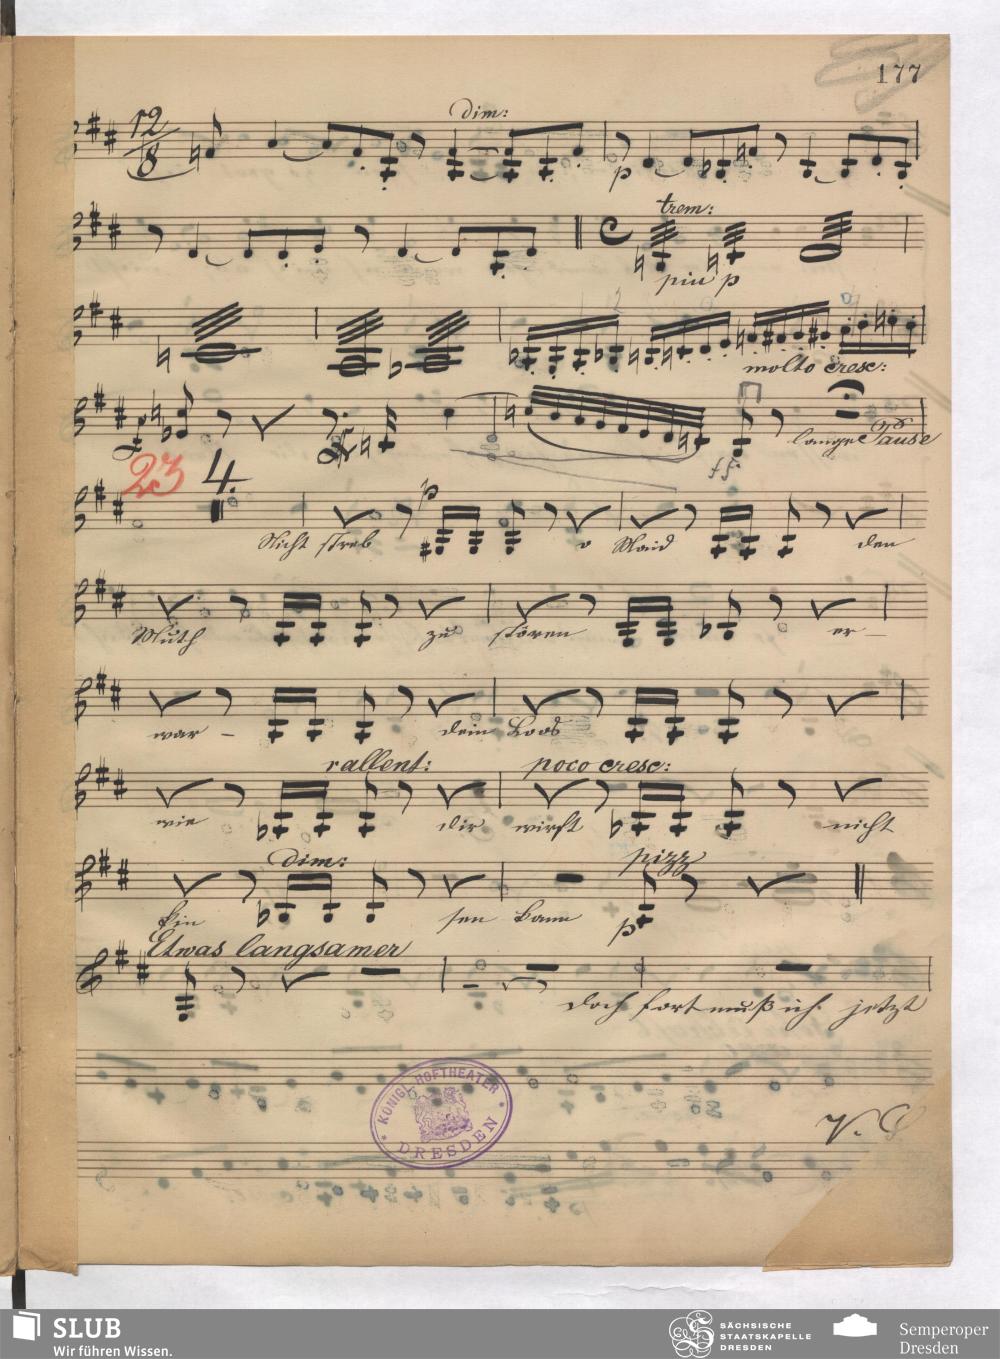 177
12/8 dim:
p
trem:
piu p
molto cresc:
ff ff lange Pause
23 4. p
Nicht streb o Maid den
Muth zu stören er-
war- dein Loos
rallent: poco cresc:
wie dir wirst nicht
dim: pizz
sen kann p
Etwas langsamer
doch fort muß ich jetzt
KÖNIGL. HOFTHEATER
DRESDEN
V.
SLUB
Wir führen Wissen.
SÄCHSISCHE
STAATSKAPELLE
DRESDEN
Semperoper
Dresden